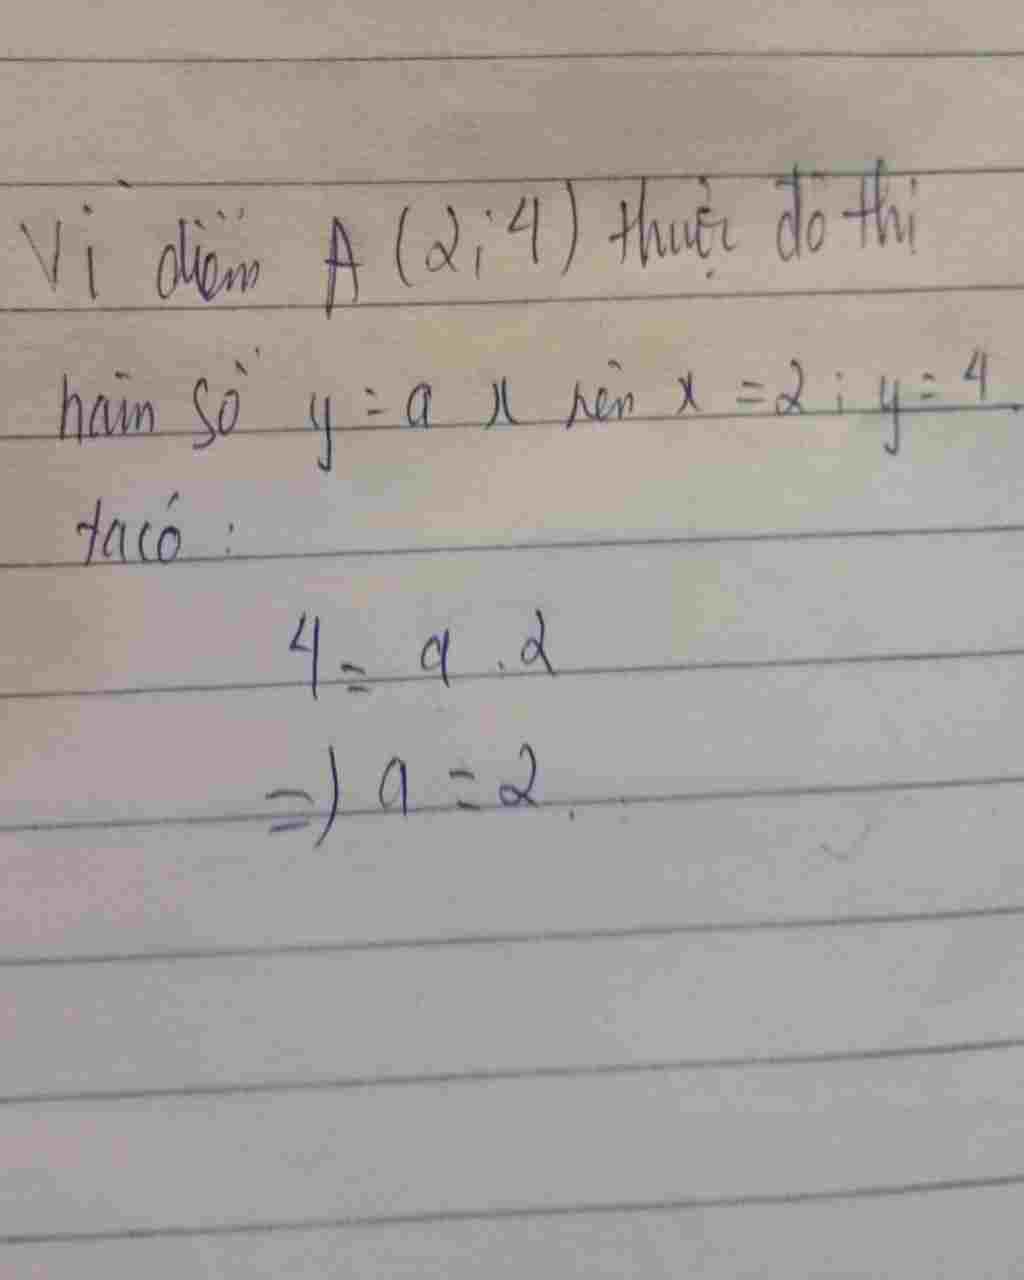 Vì điểm A (2; 4) thuộc đồ thị
hàm số y = a x nên x = 2; y = 4.
ta có :
4 = a . 2
=) a = 2.